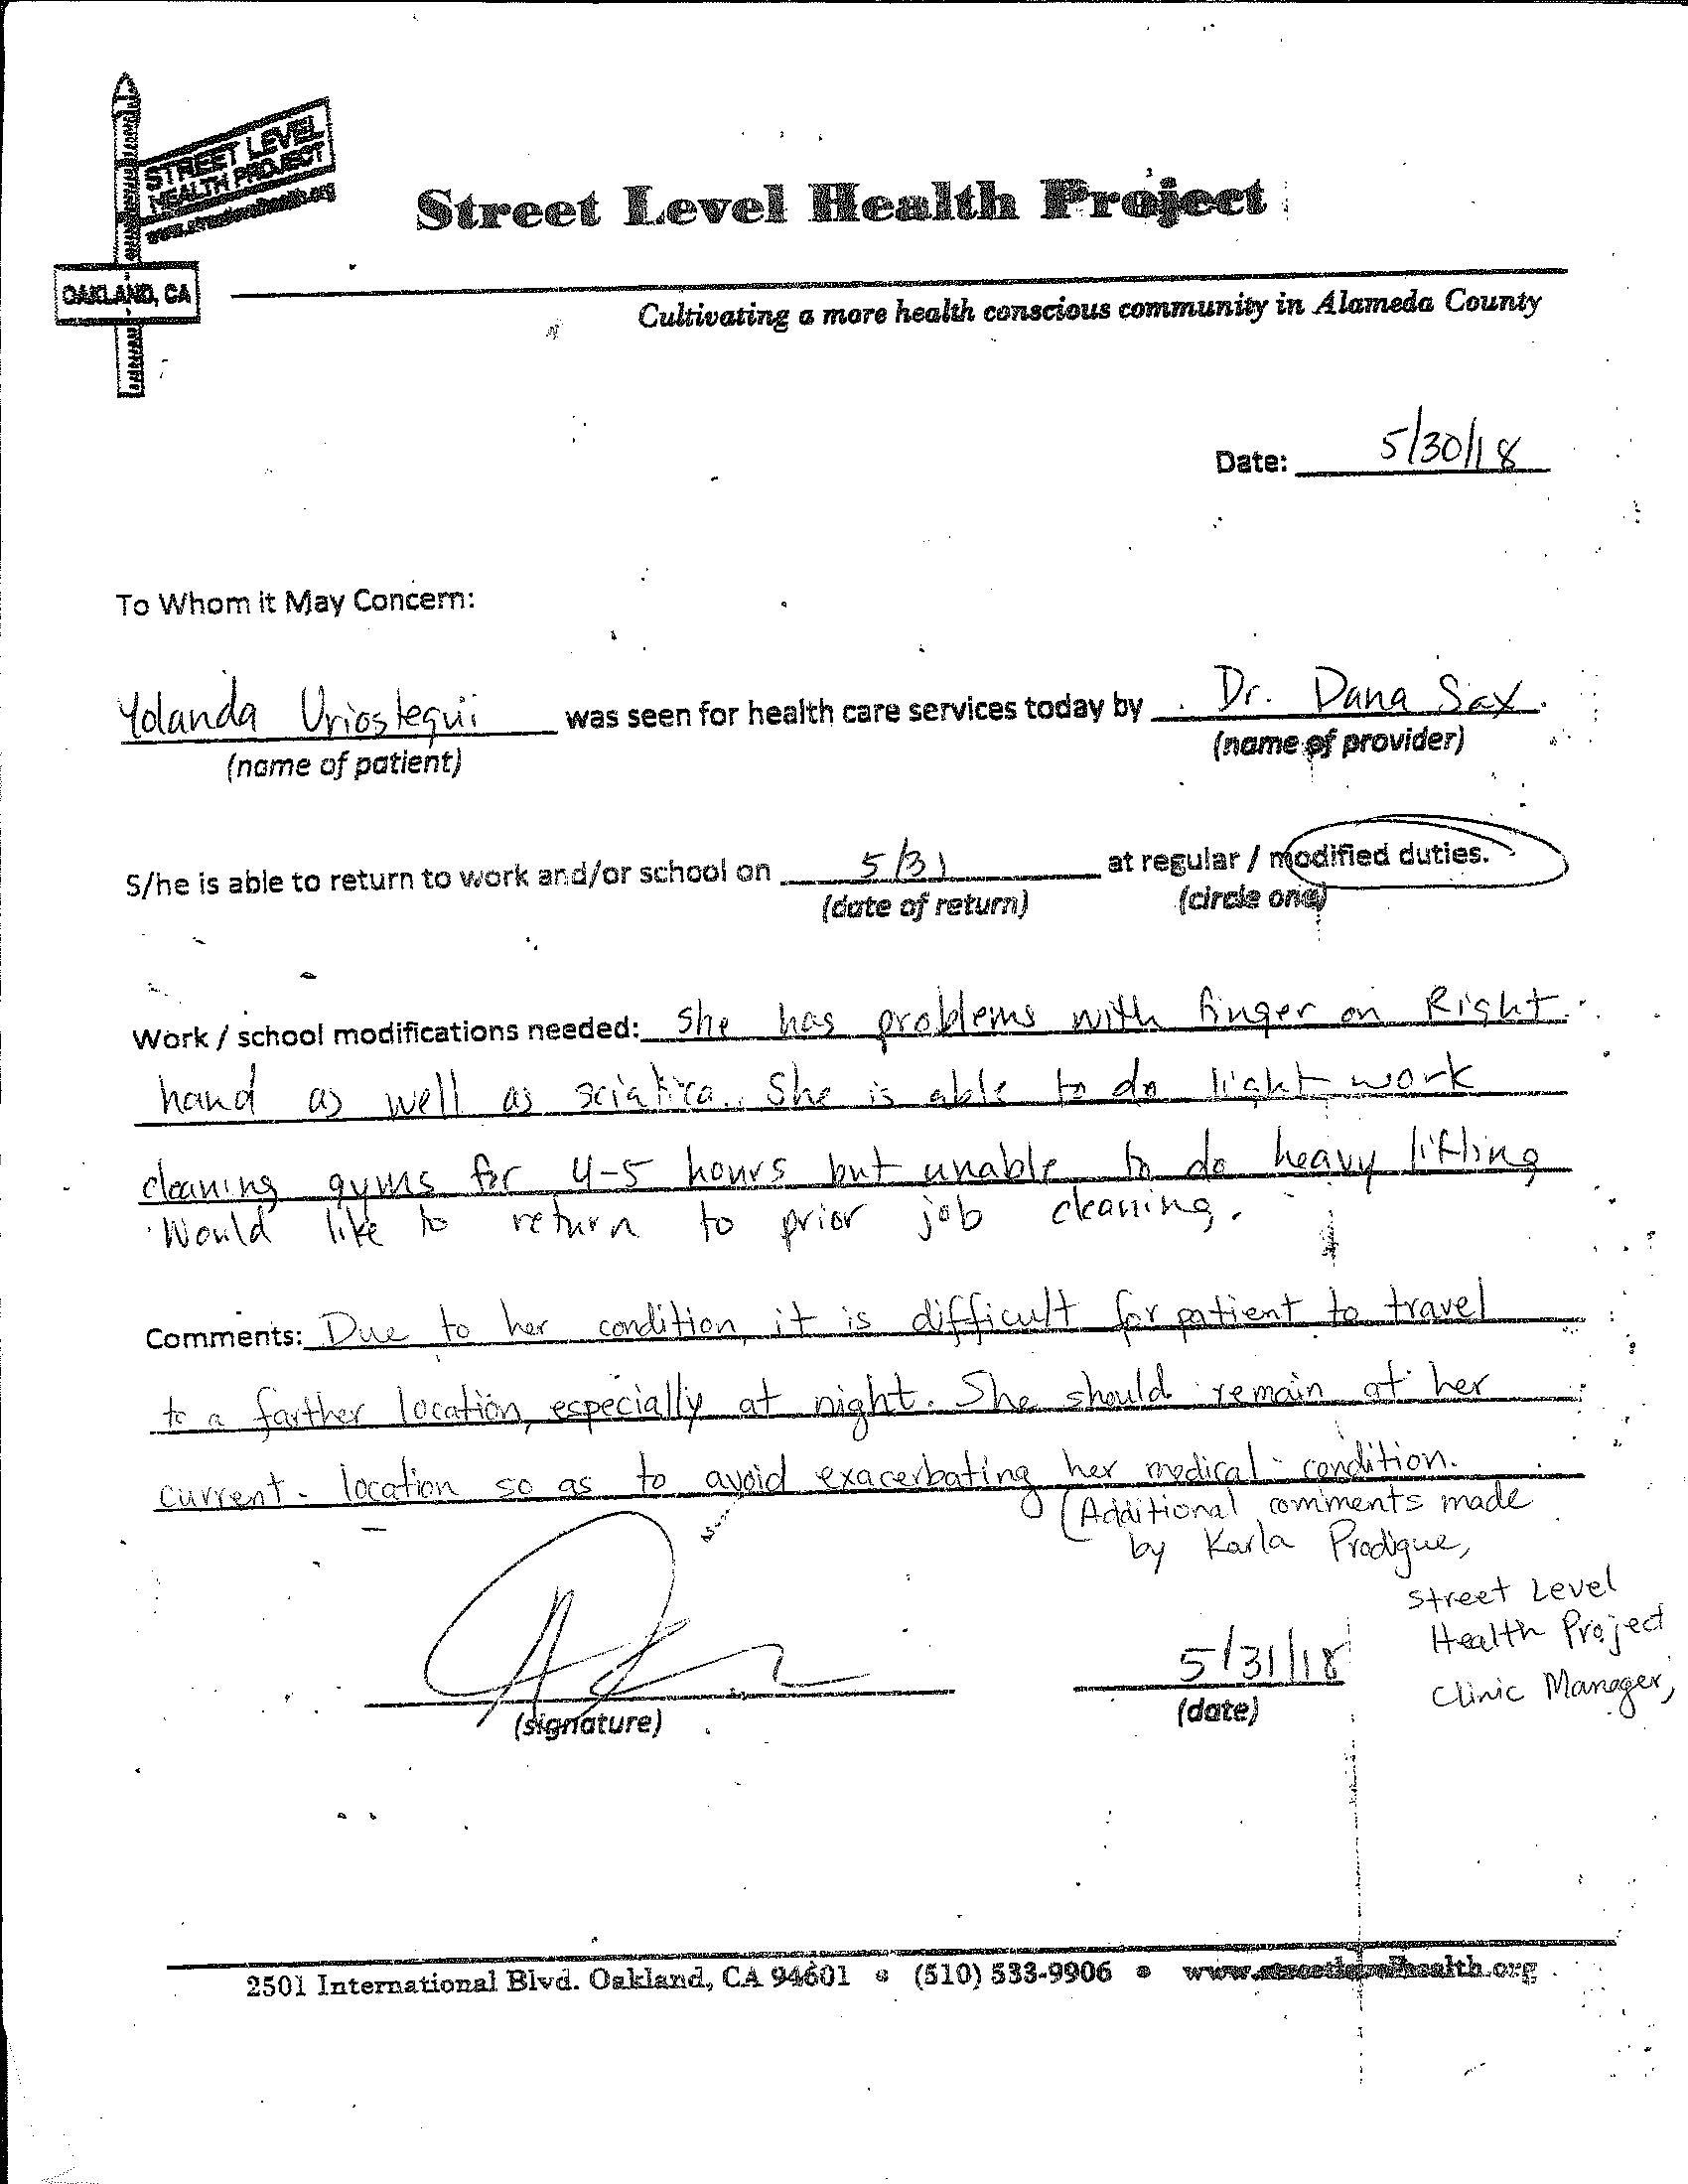 STREET LEVEL
HEALTH PROJECT
OAKLAND, CA
Street Level Health Project
Cultivating a more health conscious community in Alameda County
Date: 5/30/18
To Whom it May Concern:
Yolanda Uriostegui was seen for health care services today by Dr. Dana Sax
(name of patient) (name of provider)
S/he is able to return to work and/or school on 5/31 at regular / modified duties.
(date of return) (circle one)
Work / school modifications needed: She has problems with finger on Right
hand as well as sciatica. She is able to do light work
cleaning gyms for 4-5 hours but unable to do heavy lifting
Would like to return to prior job cleaning.
Comments: Due to her condition, it is difficult for patient to travel
to a farther location, especially at night. She should remain at her
current location so as to avoid exacerbating her medical condition.
(Additional comments made
by Karla Prodigue,
Street Level
Health Project
Clinic Manager,
5/31/18
(signature) (date)
2501 International Blvd. Oakland, CA 94601 • (510) 533-9906 • www.streetlevelhealth.org